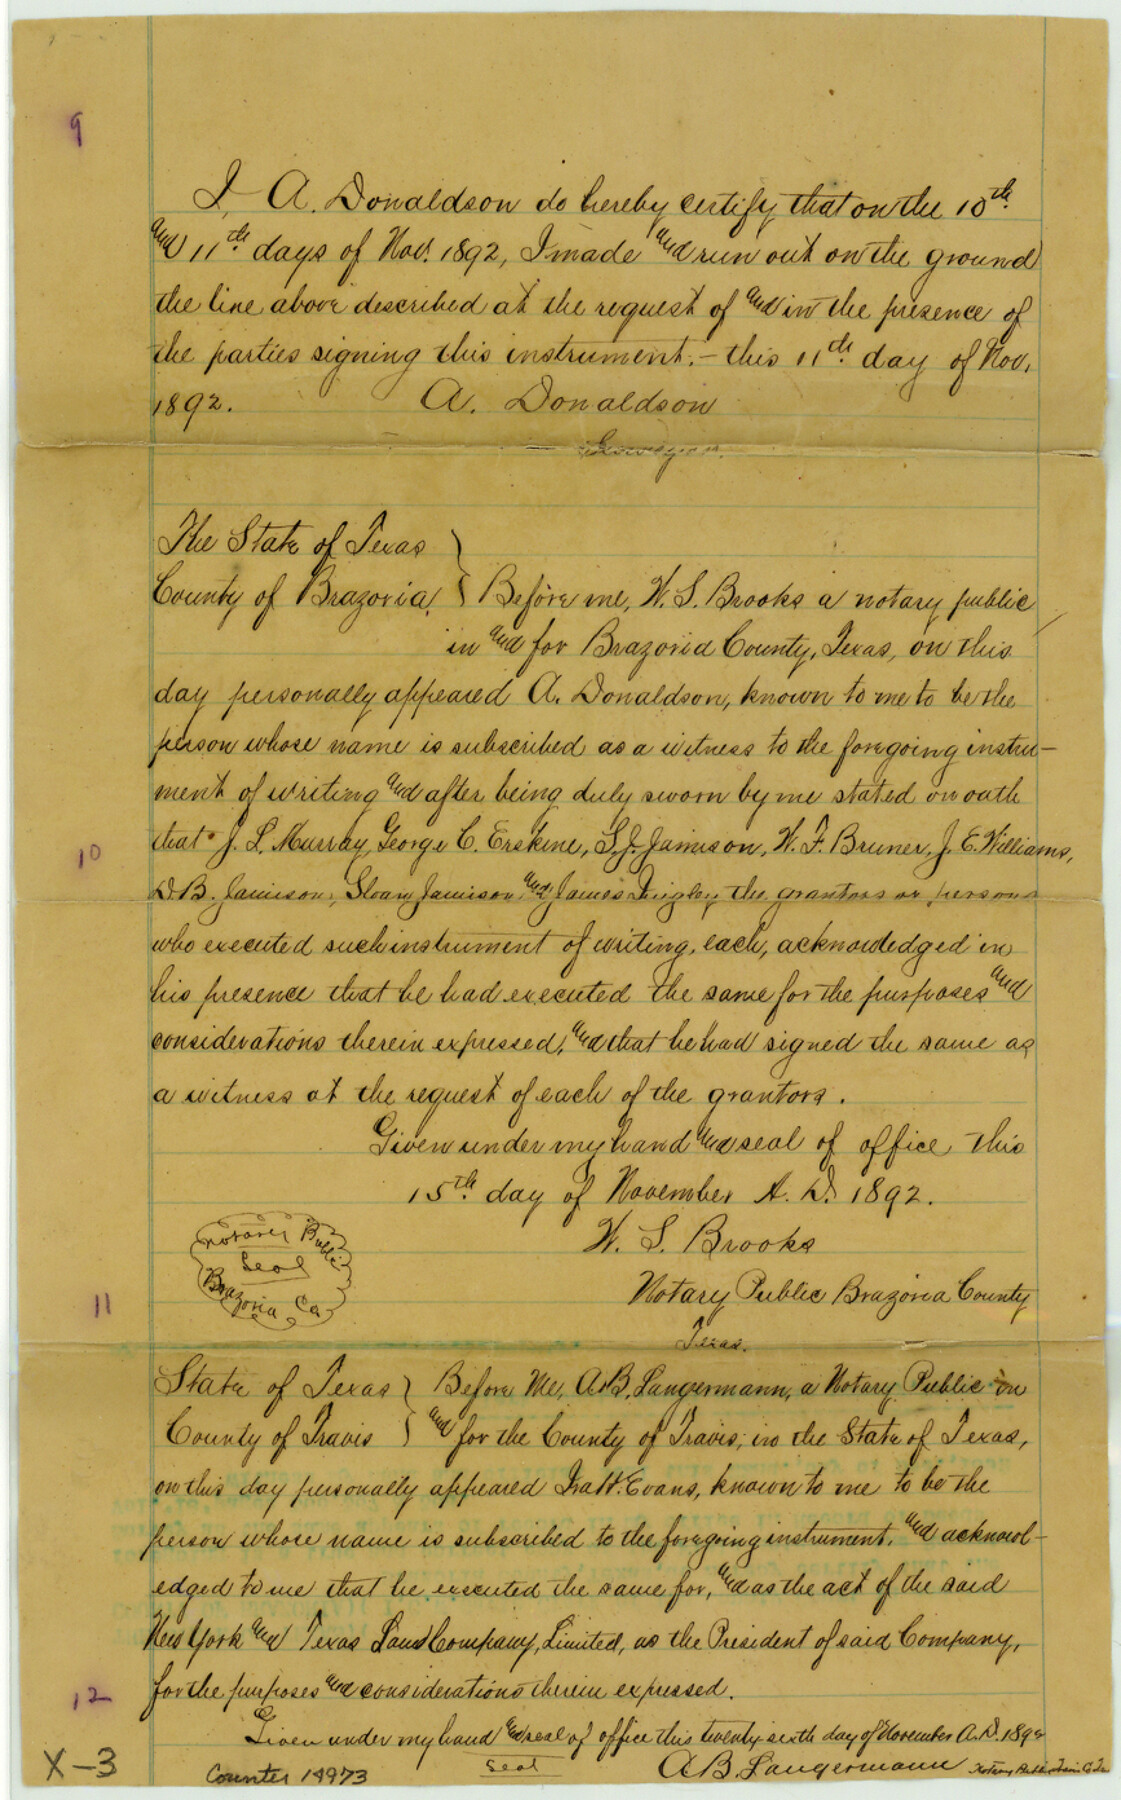 9
I, A. Donaldson do hereby certify that on the 10th
and 11th days of Nov. 1892, I made and run out on the ground
the line above described at the request of and in the presence of
the parties signing this instrument. - this 11th day of Nov.
1892. A. Donaldson
Surveyor.
The State of Texas
County of Brazoria. } Before me, W. S. Brooks a notary public
in and for Brazoria County, Texas, on this
day personally appeared A. Donaldson, known to me to be the
person whose name is subscribed as a witness to the foregoing instru-
ment of writing and after being duly sworn by me stated on oath
10
that J. L. Murray, George C. Erskine, S. J. Jamison, W. F. Bruner, J. E. Williams,
D. B. Jamison, Sloan Jamison, and James Tingley the grantors or persons
who executed such instrument of writing, each, acknowledged in
his presence that he had executed the same for the purposes and
considerations therein expressed, and that he had signed the same as
a witness at the request of each of the grantors.
Given under my hand and seal of office this
15th day of November A. D. 1892.
W. S. Brooks
Notary Public
Seal
Brazoria Co
11
Notary Public Brazoria County
Texas.
State of Texas } Before Me, A. B. Langermann, a Notary Public in
County of Travis } and for the County of Travis, in the State of Texas,
on this day personally appeared Ira H. Evans, known to me to be the
person whose name is subscribed to the foregoing instrument, and acknowl-
edged to me that he executed the same for, and as the act of the said
New York and Texas Land Company, Limited, as the President of said Company,
12
for the purposes and considerations therein expressed.
Given under my hand and seal of office this twenty sixth day of November A. D. 1892
X-3
Counter 14973
Seal
A. B. Langermann Notary Public Travis Co Tx